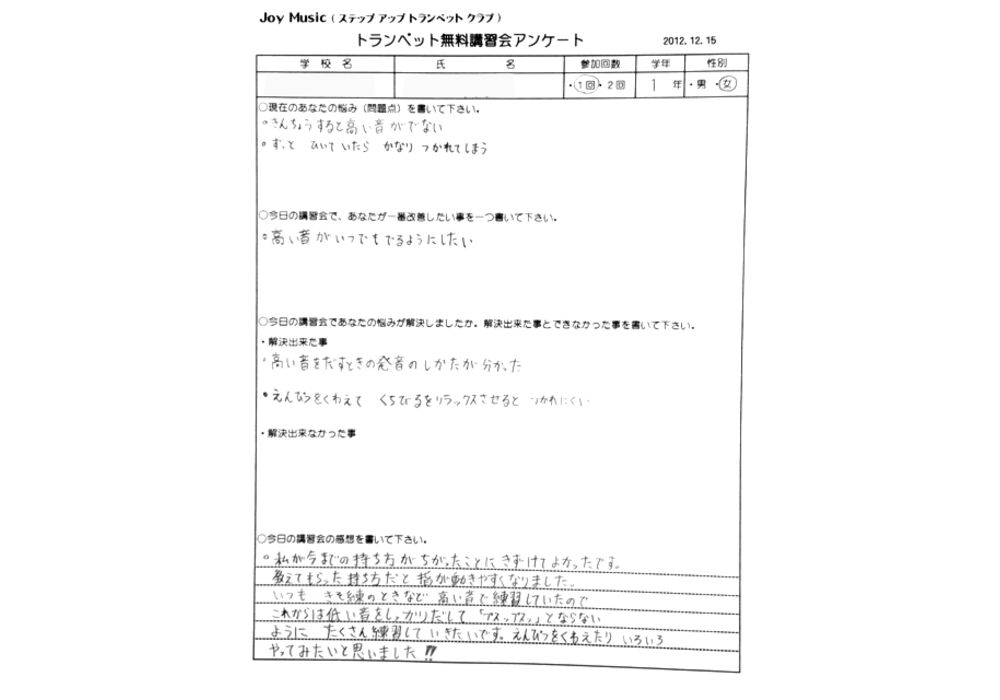 Joy Music ( ステップ アップ トランペット クラブ )
トランペット無料講習会アンケート 2012. 12. 15
学 校 名 氏 名 参加回数 学年 性別
・1回・2回 1 年 ・男 ・女
○現在のあなたの悩み(問題点)を書いて下さい。
・きんちょうすると高い音がでない
・ずっと ひいていたら かなり つかれてしまう
○今日の講習会で、あなたが一番改善したい事を一つ書いて下さい。
・高い音がいつでもでるようにしたい
○今日の講習会であなたの悩みが解決しましたか。解決出来た事とできなかった事を書いて下さい。
・解決出来た事
・高い音をだすときの発音のしかたが分かった
・えんぴつをくわえて くちびるをリラックスさせると つかれにくい
・解決出来なかった事
○今日の講習会の感想を書いて下さい。
・私が今までの持ち方がちがったことにきずけてよかったです。
教えてもらった持ち方だと指が動きやすくなりました。
いつも きそ練のときなど 高い音で練習していたので
これからは低い音をしっかりだして「プスップスッ」とならない
ように たくさん練習していきたいです。えんぴつをくわえたり いろいろ
やってみたいと思いました!!